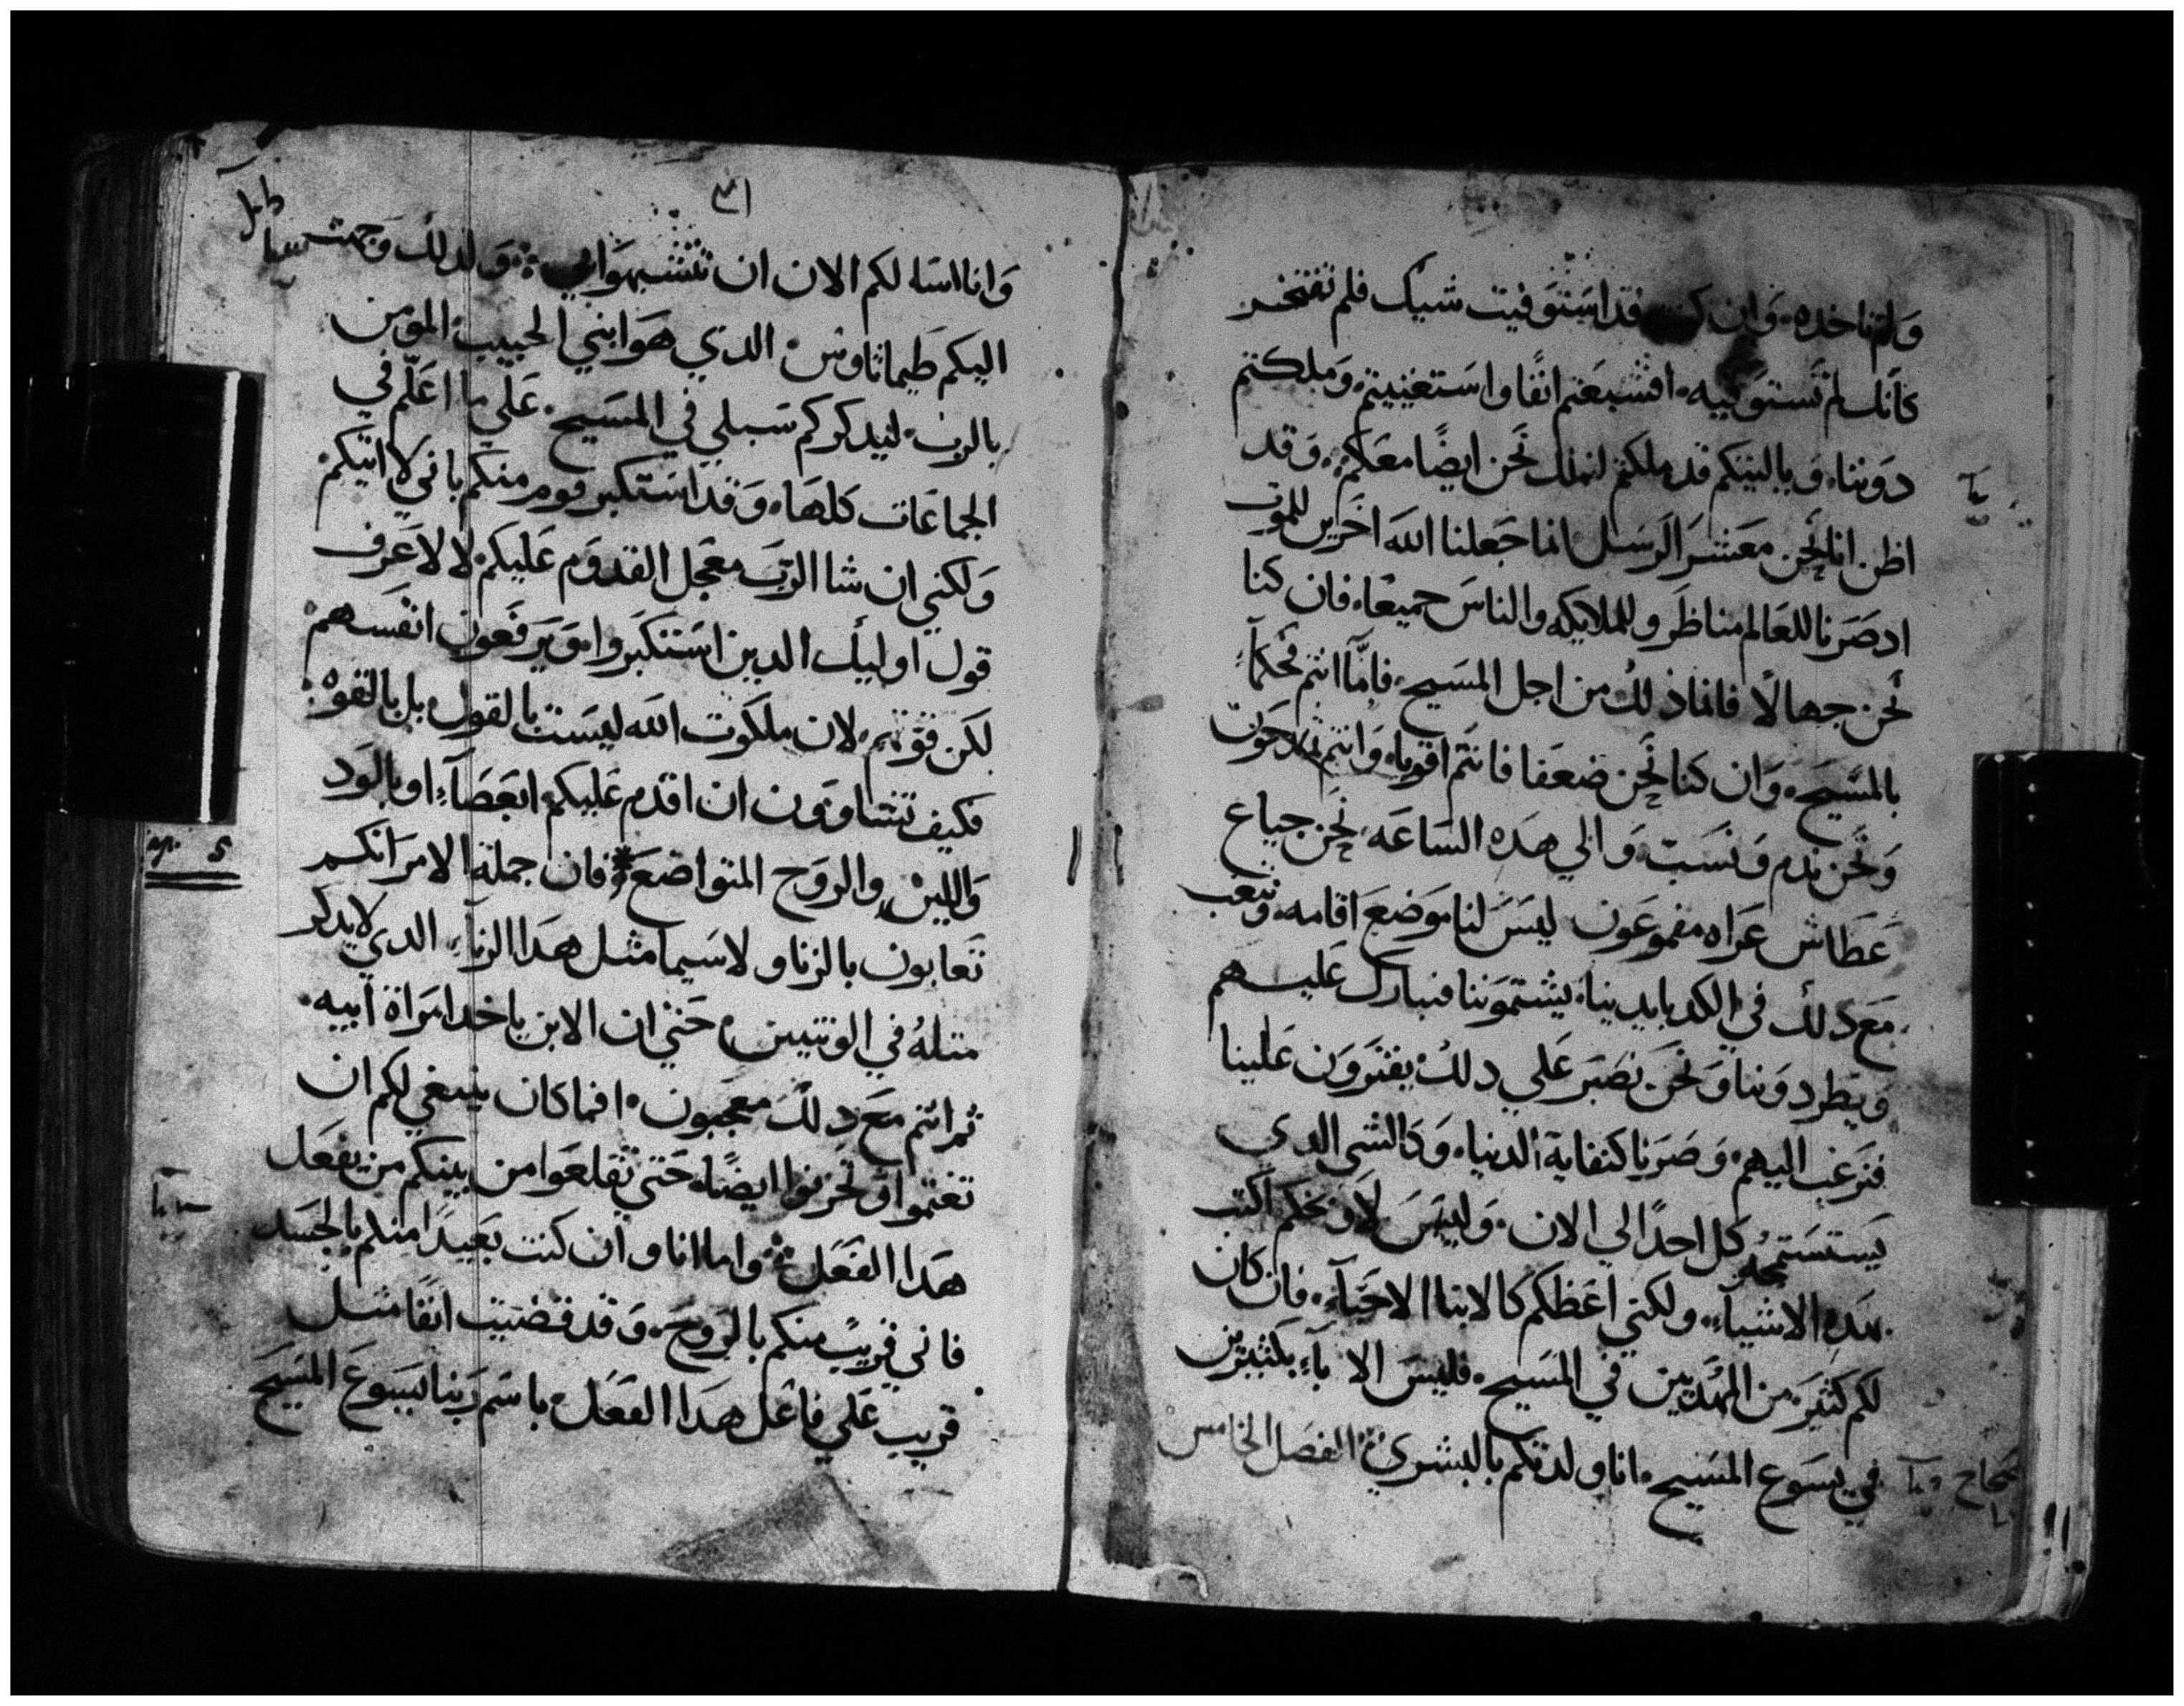 ولم تاخده وان كنت قد استوفيت شيك فلم تفتخر
كانك لم تستوفيه افشبعتم انفًا واستغنيتم وملكتم
دوننا ويا ليتكم قد ملكتم لنملك نحن ايضًا معكم وقد
اظن انا نحن معشر الرسل انما جعلنا الله اخرين للموت
اد صرنا للعالم مناظر وللملايكه والناس جميعًا فان كنا
نحن جهالًا فانما ذلك من اجل المسيح فامّا انتم فحكمآ
بالمسيح وان كنا نحن ضعفا فانتم اقويا وانتم تمدحون
ونحن ندم ونسب والي هده الساعه نحن جياع
عطاش عراه مقموعون ليس لنا موضع اقامه ونتعب
مع دلك في الكد بايدينا يشتموننا فنبارك عليهم
ويطردوننا ونحن نصبر علي دلك يفترون علينا
فنرغب اليهم وصرنا كنفاية الدنيا وكالشي الدي
كل احدًا الي الان وليس لاوبخكم اكتب
بهده الاشيآء ولكني اعظكم كالابنا الاحبآء فان كان
لكم كثير من المهديين في المسيح فليس الابآء بكثيرين
في يسوع المسيح انا ولدتكم بالبشري الفصل الخامس
٣١
وانا اسله لكم الان ان تتشبهوا بي ولدلك وجهت
اليكم طيماثاوس الدي هو ابني الحبيب المومن
بالرب ليدكركم سبلي في المسيح علي ما اعلّم في
الجماعات كلها وقد استكبر قوم منكم باني لا اتيكم
ولكني ان شا الرب معجل القدوم عليكم لا لاعرف
قول اوليك الدين استكبروا ويرفعون انفسهم
لكن قوتهم لان ملكوت الله ليست بالقول بل بالقوه
فكيف تشاوون ان اقدم عليكم ابعصآء او بالود
واللين والروح المتواضع فان جملة الامر انكم
تعابون بالزنا ولا سيما مثل هدا الزنآء الدي لا يدكر
متله في الوتنيين حتي ان الابن ياخد امراة ابيه
ثم انتم مع دلك معجبون افما كان ينبغي لكم ان
تغتموا وتحزنوا ايضًا حتي تقلعوا من بينكم من يفعل
هدا الفعل واما انا وان كنت بعيدًا منكم بالجسد
فاني قريب منكم بالروح وقد قضيت انفًا متل
قريب علي فاعل هدا الفعل باسم ربنا يسوع المسيح